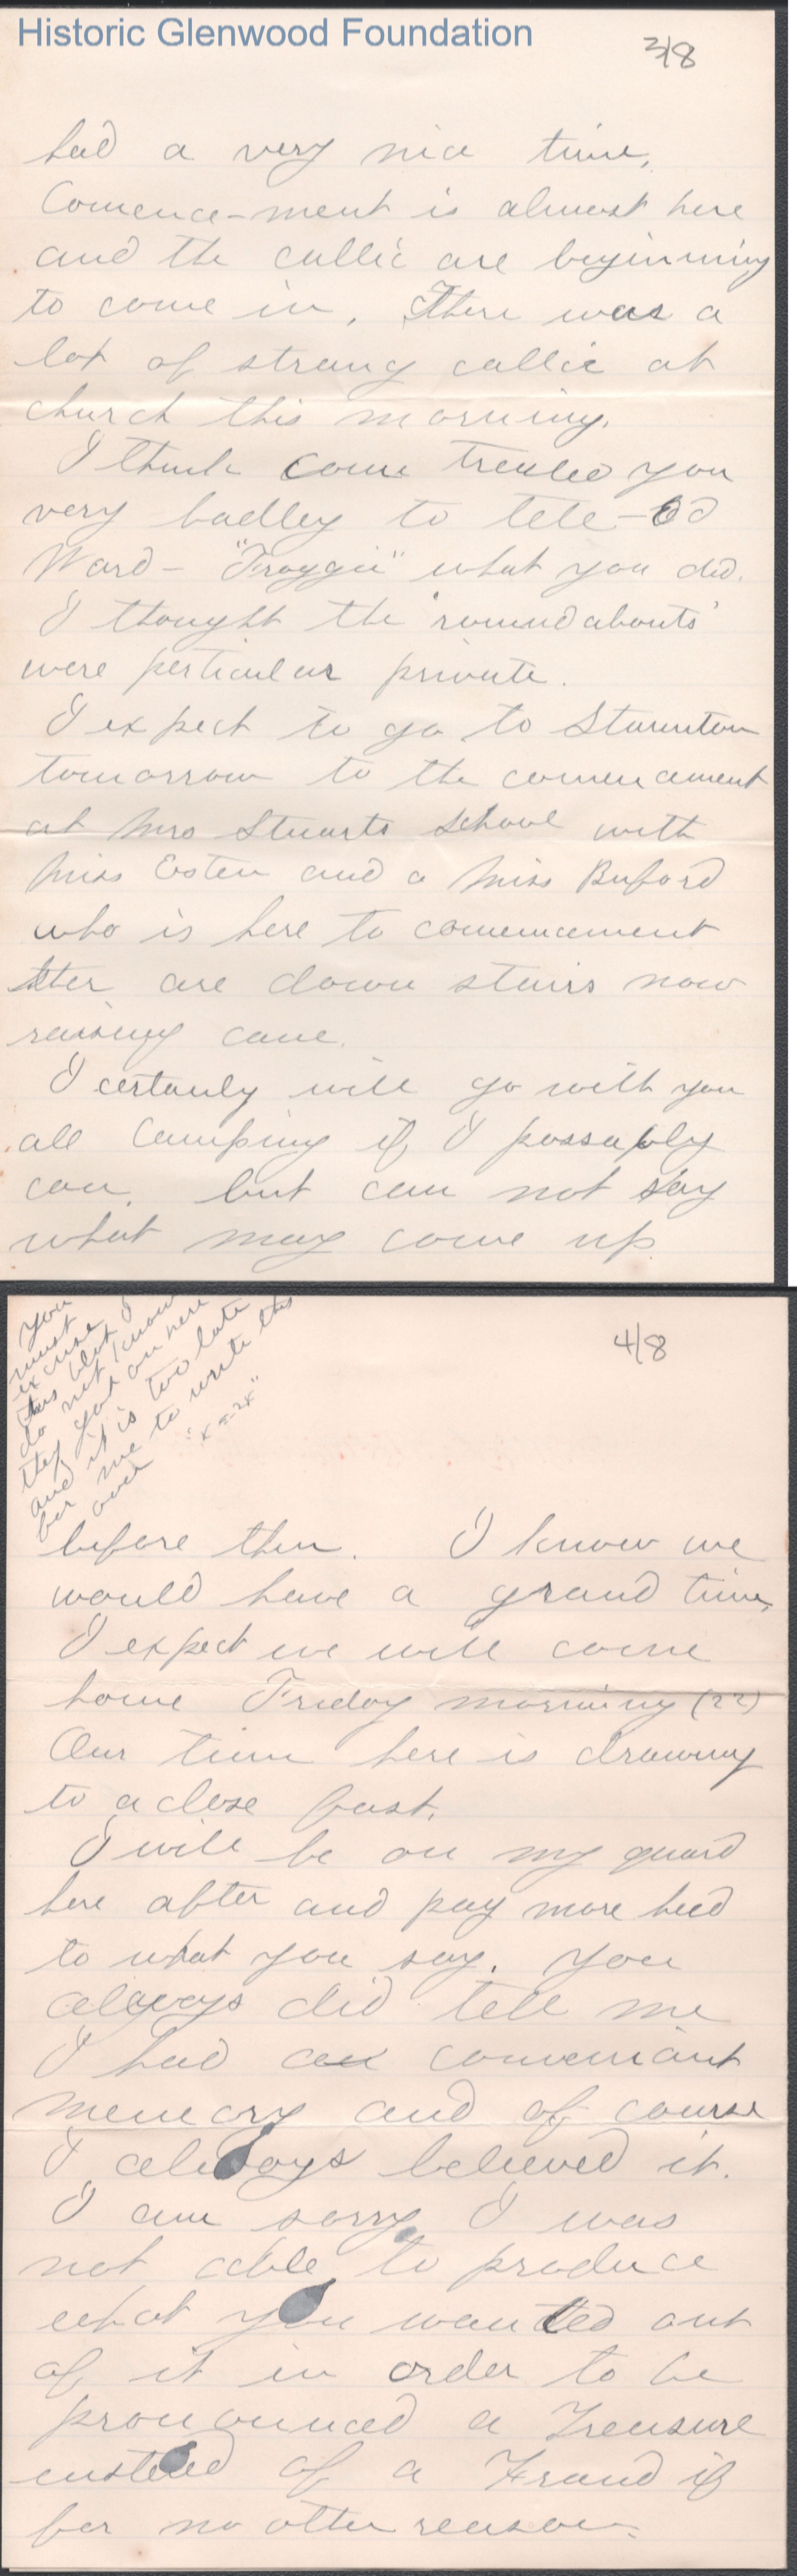 Historic Glenwood Foundation
3/8
had a very nice time,
Comence-ment is almost here
and the callic are beginning
to come in, There was a
lot of strang callic at
church this morning.
I think treated you
very badley to tele-
Ward- "Froggie" what you did.
I thought the 'roundabouts'
were perticular private.
I expect to go to Staunton
tomorrow to the comencement
at Mrs Stuarts School with
Miss and a Miss Buford
who is here to comencement
are down stairs now
raising cane.
I certanly will go with you
all Camping if I possably
can, but can not say
what may come up
4/8
You
must
excuse
this blot I
do not know
they got on here
and it is too late
for me to write this
over
before then. I know we
would have a grand time,
I expect we will come
home Friday morning (22)
Our time here is drawing
to a close fast.
I will be on my guard
here after and pay more heed
to what you say. You
always did tell me
I had a conveniant
memory and of course
I always believed it.
I am sorry I was
not able to produce
what you wanted out
of it in order to be
pronounced a Treasure
instead of a Fraud if
for no other reason.